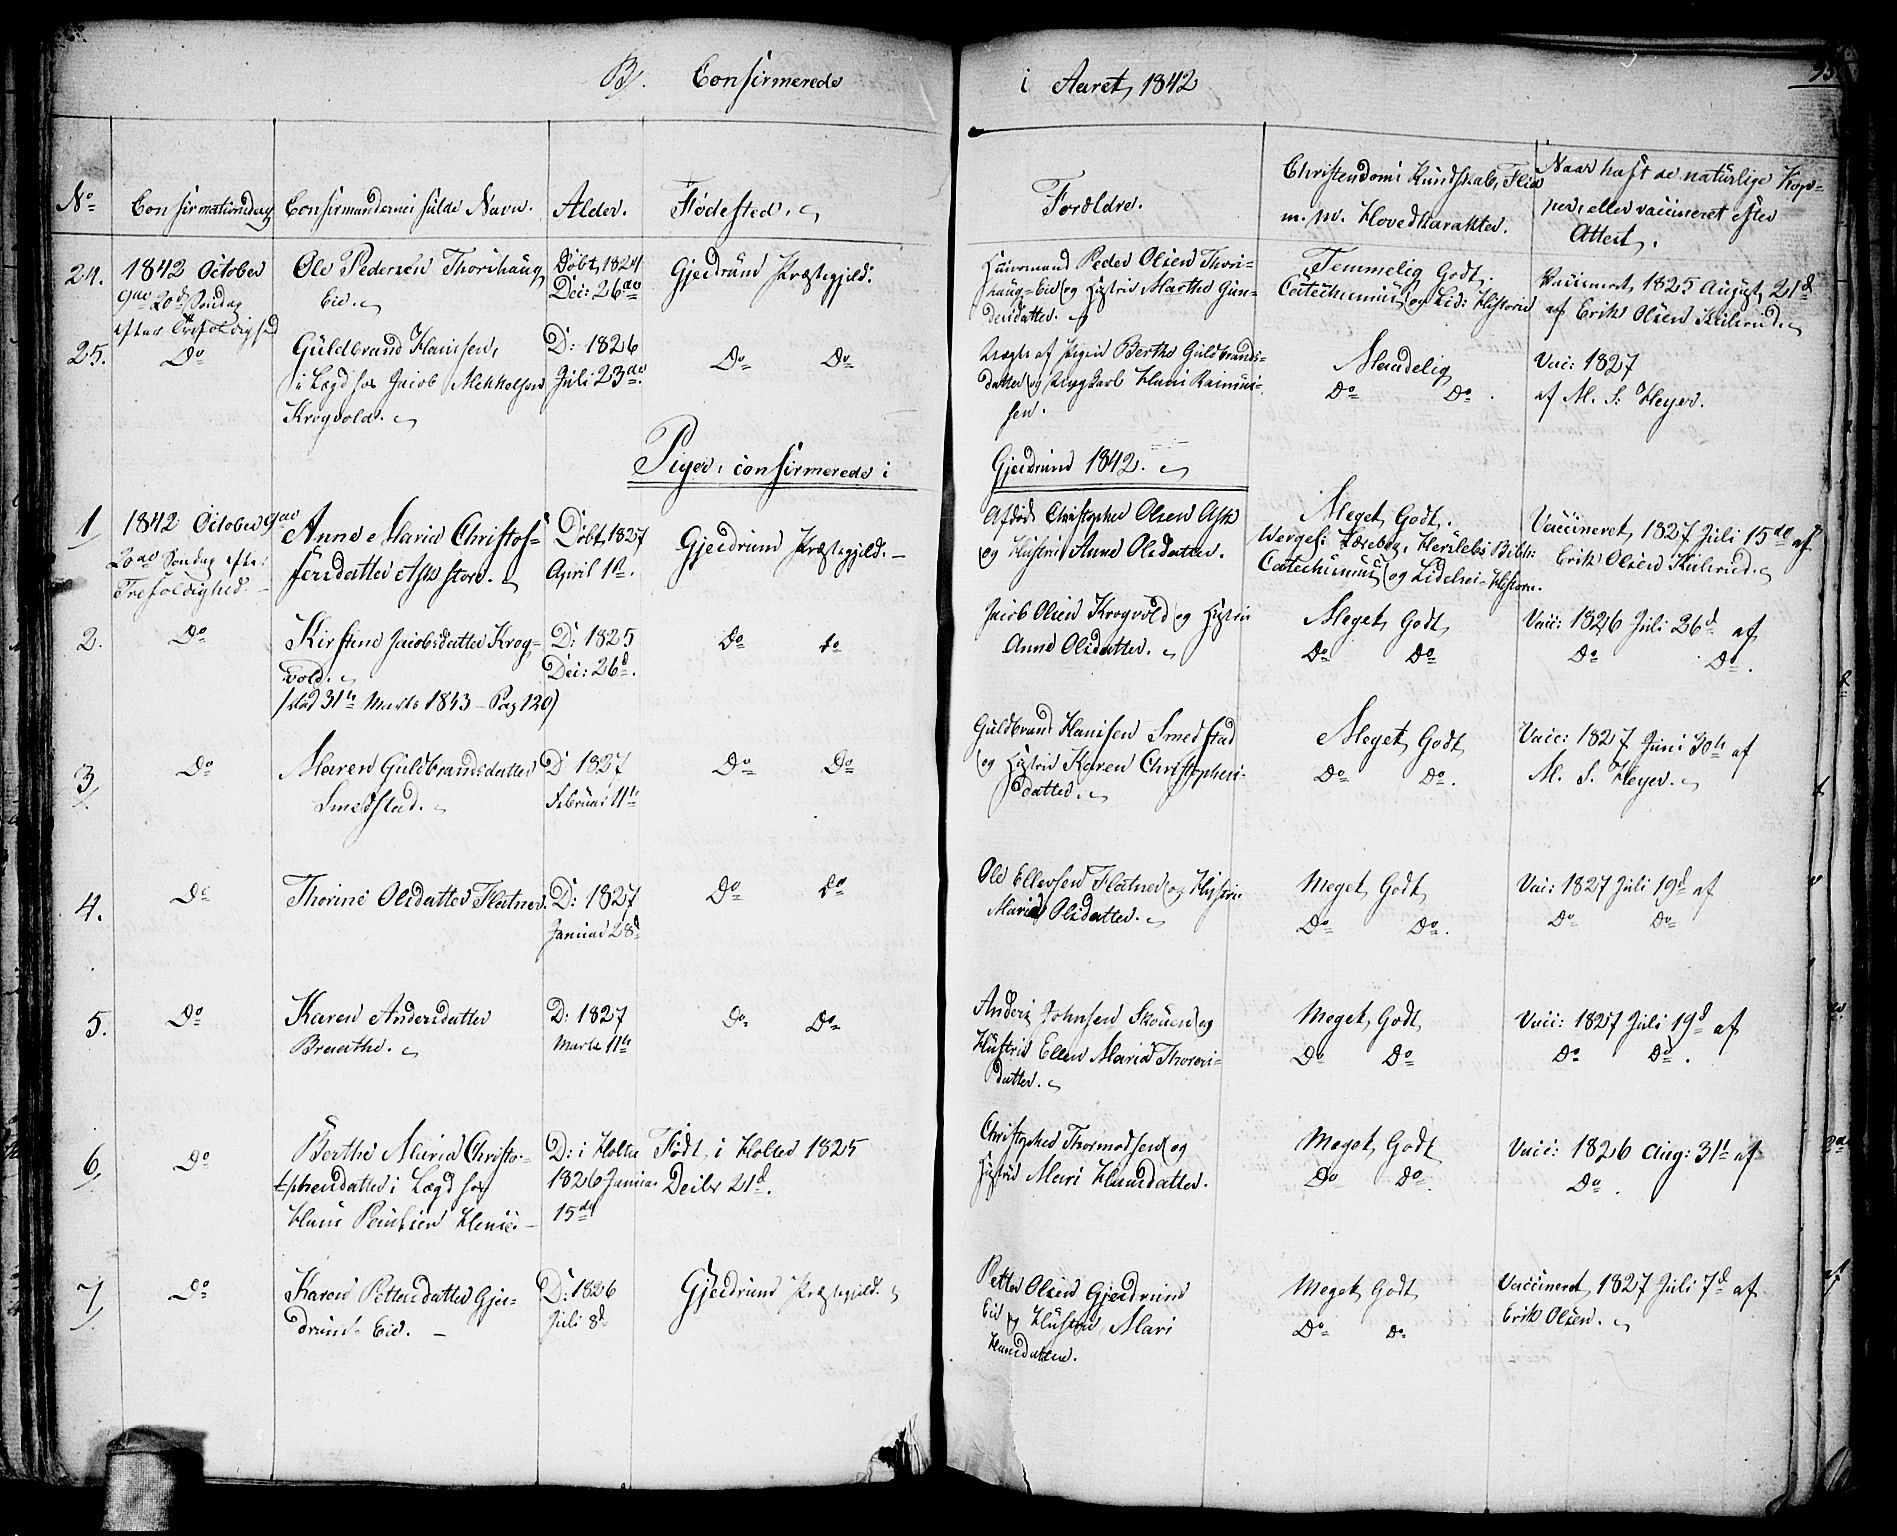 B. Confirmerede i Aaret 1842
95
No
Confirmationsdag
Confirmandernes fulde Navn.
Alder.
Fødested.
Forældre.
Christendoms Kundskab, Flid
m. m. Hovedkarakter.
Naar haft de natürlige Kop-
per, eller vaccineret efter
Attest.
24.
1842 October
9de 20de Søndag
efter Trefoldighed
Ole Pedersen Thorshaug
Eie.
Døbt 1824
Dec: 26de
Gjerdrum Præstegjeld.
Huusmand Peder Olsen Thors-
haug-Eie og Hustru Marthe Gun-
dersdatter.
Temmelig Godt.
Catechismus og Lid: Historie
Vaccineret 1825 August 21de
af Erik Olsen Kulsrud.
25.
Do
Guldbrand Hansen,
i Lægd hos Jacob
Krogvold.
D: 1826
Juli 23de.
Do Do
Uægte af Pigen Berthe Guldbrands-
datter og Ungkarl Hans Rasmus-
sen.
Maadelig
Do Do.
Vac: 1827
af M. S. Heyer.
Piger, confirmerede i
Gjerdrum 1842.
1
1842 October 9de
20de Søndag efter
Trefoldighed.
Anne Maria Christof-
fersdatter Ask store.
Døbt 1827
April 1ste.
Gjerdrum Præstegjeld.
Afdøde Christopher Olsen Ask
og Hustru Anne Olsdatter.
Meget Godt.
Wergels Lærebog, Herslebs Bibl:
Catechismus og Lidelses-Historie.
Vaccineret 1827 Juli 15de af
Erik Olsen Kulsrud.
2.
Do
Kirstine Jacobsdatter Krog-
vold.
/død 31te Marts 1843 - Pag 120/
D: 1825
Dec: 26d.
Do do
Jacob Olsen Krogvold og Hustru
Anne Olsdatter.
Meget Godt
Do Do
Vacc: 1826 Juli 26d af
Do Do.
3
Do
Maren Guldbrandsdatter
Smedstad.
D: 1827
Februar 11te
Do Do
Guldbrand Hansen Smedstad
og Hustru Karen Christophers-
datter.
Meget Godt
Do Do.
Vacc: 1827 Juni 30te af
M. S. Heyer.
4.
Do
Thorine Olsdatter Flatner.
D: 1827
Januar 28d
Do Do
Ole Ellevsen Flatner og Hustru
Maria Olsdatter.
Meget Godt
Do Do.
Vac: 1827 Juli 19d af
Do Do
5.
Do
Karen Andersdatter
Braathe.
D: 1827
Marts 11te
Do Do
Anders Johnsen Skouen og
Hustru Ellen Maria Thores-
datter.
Meget Godt
Do Do
Vacc: 1827 Juli 19d af
Do Do.
6.
Do
Berthe Maria Christo-
phersdatter i Lægd hos
Hans
D: i Holter
1826 Januar
15de
Født i Holter 1825
Decbr 21d.
Christopher Thormodsen og
Hustru Mari Hansdatter.
Meget Godt
Do Do.
Vacc: 1826 Aug: 31te af
Do.
7
Do
Karen Pettersdatter Gjer-
drum-Eie.
D: 1826
Juli 8d
Gjerdrum Præstegjeld.
Petter Olsen Gjerdrum
Eie og Hustru Mari
Hansdatter.
Meget Godt
Do Do
Vaccineret 1827 Juli 7d af
Erik Olsen.